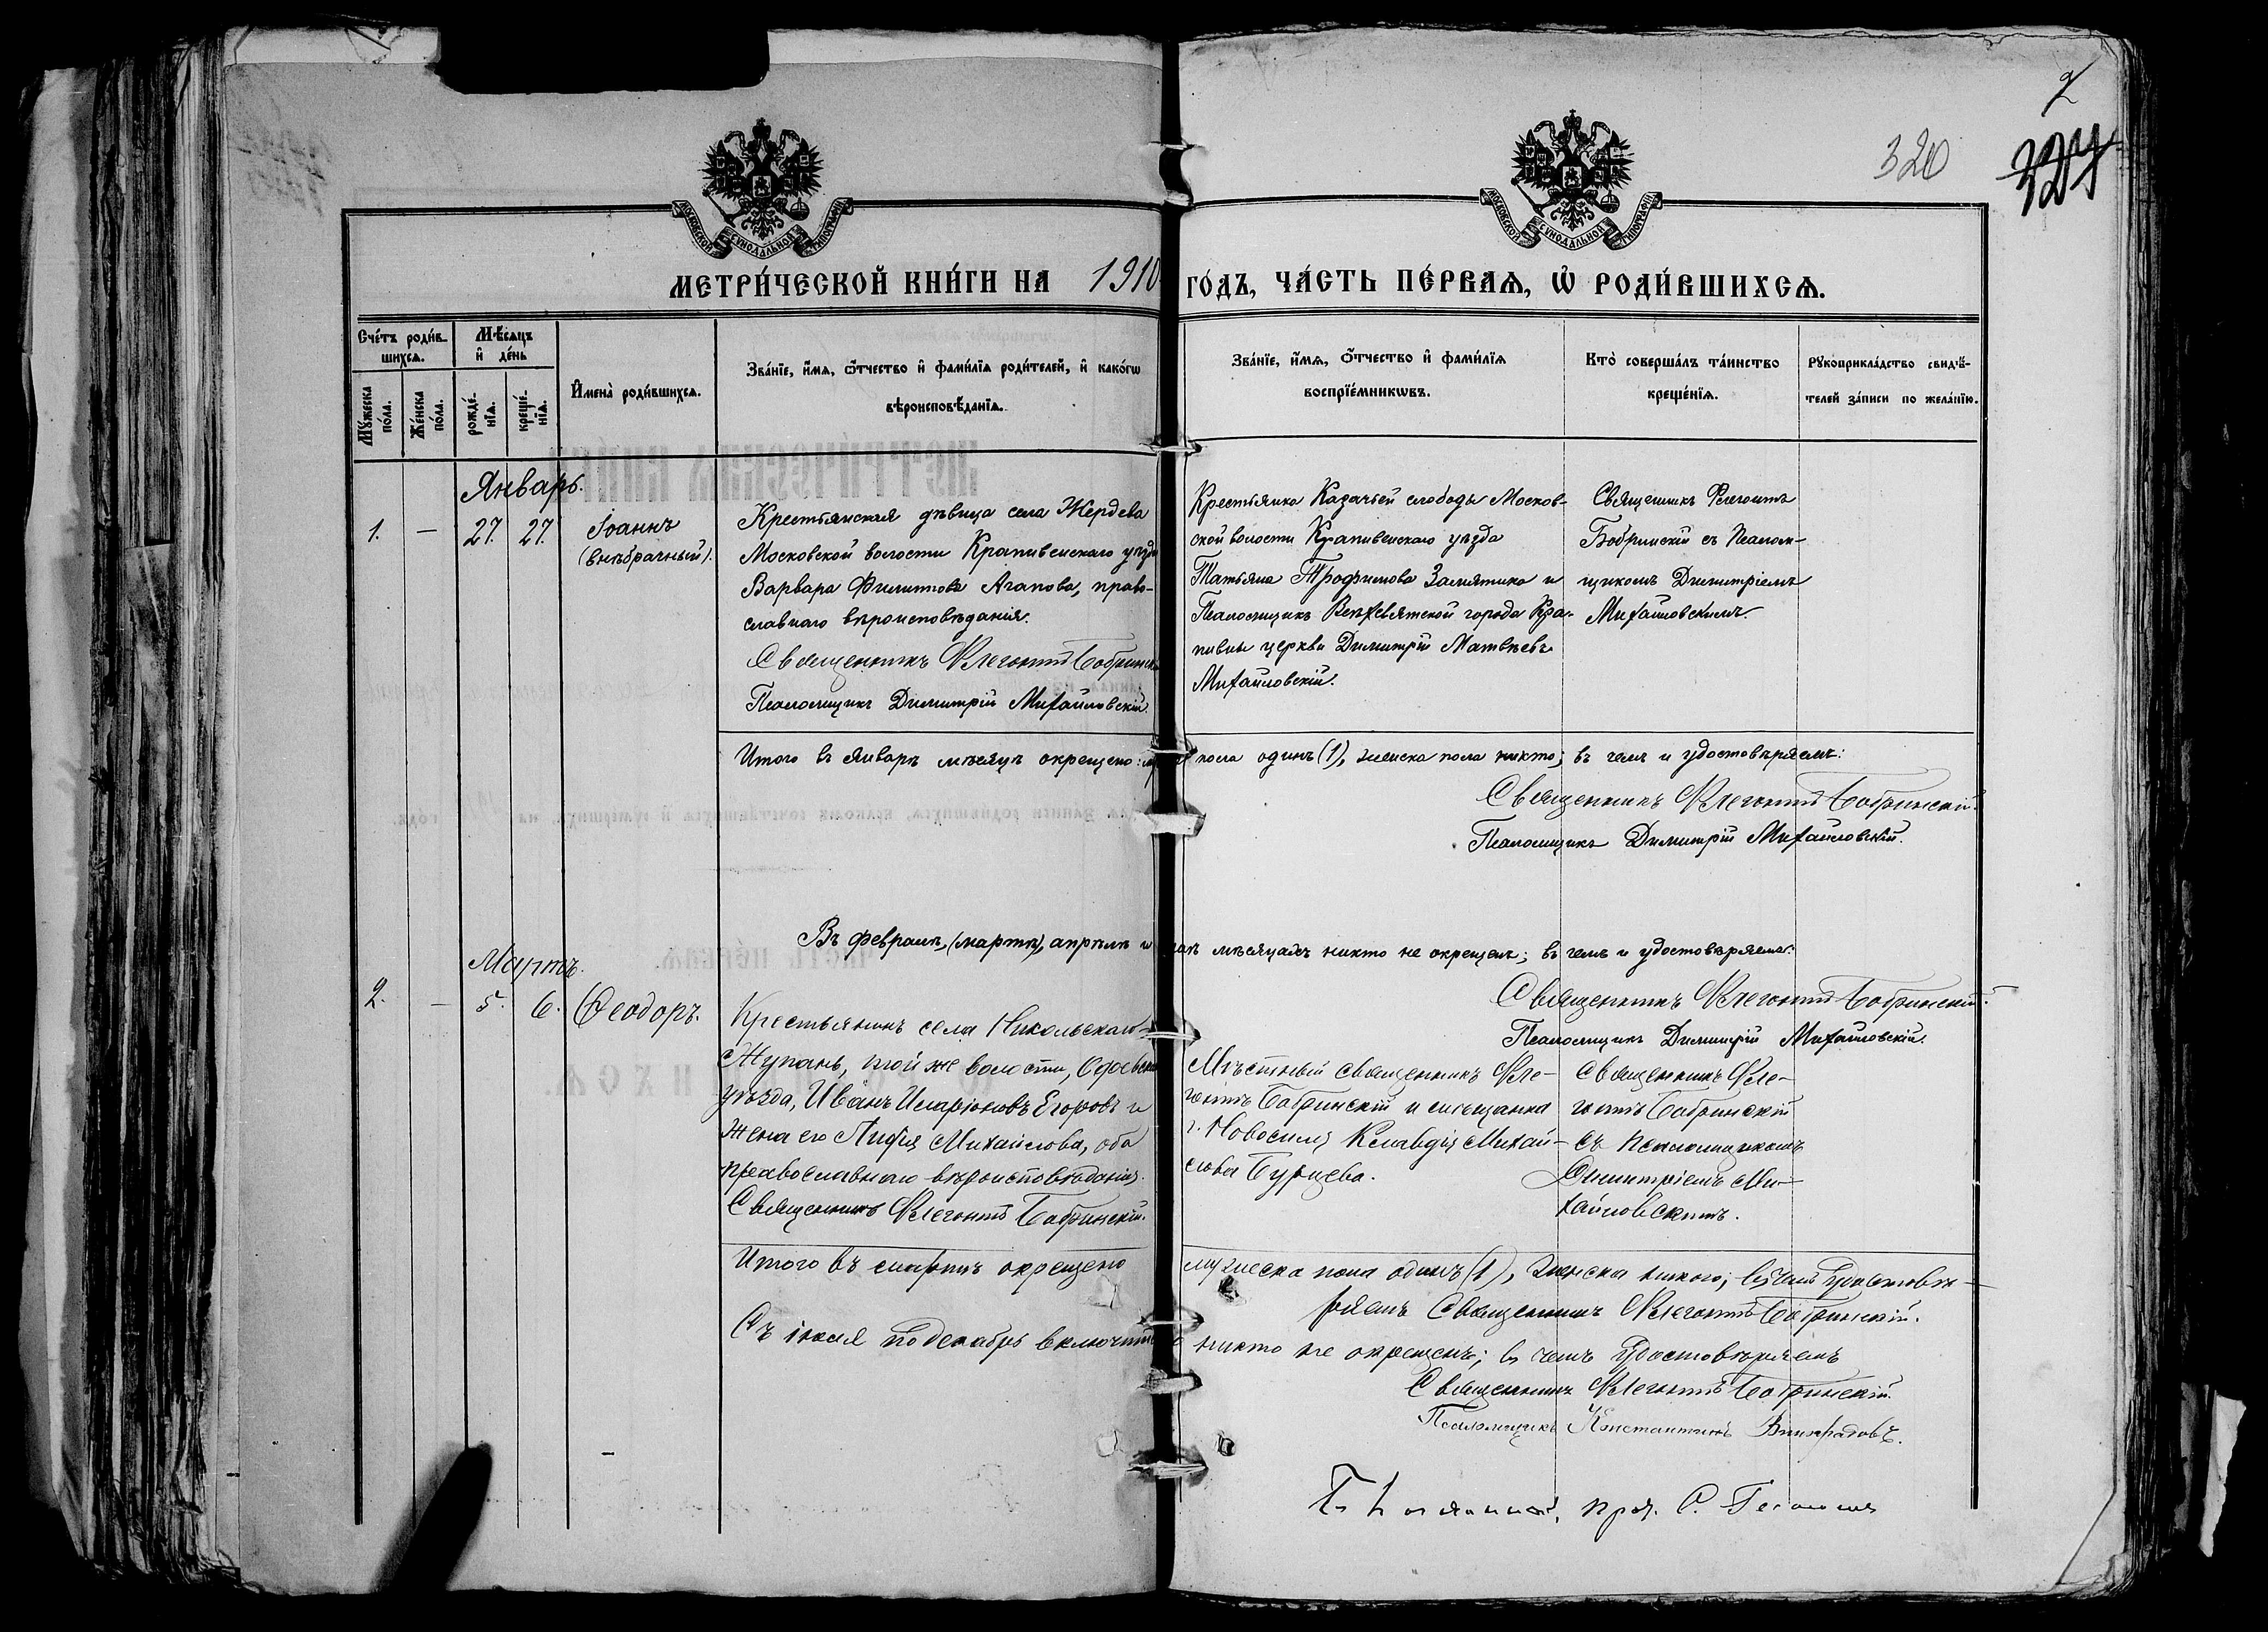 2
320
327
МОСКОВСКОЙ СѴНОДАЛЬНОЙ ТИПОГРАФІИ
МОСКОВСКОЙ СѴНОДАЛЬНОЙ ТИПОГРАФІИ
МЕТРИ́ЧЕСКОЙ КНИ́ГИ НА 1910 ГО́ДЪ, ЧА́СТЬ ПЕ́РВАѦ, Ѡ҆ РОДИ́ВШИХСѦ.
Сче́тъ роди́в-
шихсѧ.
Мѣ́сѧцъ
и҆ де́нь
Мꙋ́жеска
по́ла.
Же́нска
по́ла.
рожде́-
нїѧ.
креще́-
нїѧ.
И҆мена̀ роди́вшихсѧ.
Зва́нїе, и҆́мѧ, ѻ҆́тчество и҆ фами́лїѧ роди́телей, и҆ како́гѡ
вѣроисповѣ́данїѧ.
Зва́нїе, и҆́мѧ, ѻ҆́тчество и҆ фами́лїѧ
воспрїе́мникѡвъ.
Кто̀ соверша́лъ та́инство
креще́нїѧ.
Рꙋкоприкла́дство свидѣ́-
телей за́писи по жела́нїю.
Январь.
1. — 27. 27. Іоаннъ
(внѣбрачный).
Крестьянская дѣвица села Жердева
Московской волости Крапивенскаго уѣзда
Варвара Филитова Агапова, право-
славнаго вѣроисповѣданія.
Священникъ Флегонтъ Бобринскій
Псаломщикъ Димитрій Михайловскій.
Крестьянка Казачьей слободы Москов-
ской волости Крапивенскаго уѣзда
Татьяна Трофимова Замятина и
Псаломщикъ Всѣхсвятской города Кра-
пивны церкви Димитрій Матвѣевъ
Михайловскій.
Священникъ Флегонтъ
Бобринскій съ Псалом-
щикомъ Димитріемъ
Михайловскимъ.
Итого въ январѣ мѣсяцѣ окрещено: пола одинъ (1), женска пола никто; въ чемъ и удостовѣряемъ:
Священникъ Флегонтъ Бобринскій.
Псаломщикъ Димитрій Михайловскій.
Въ февралѣ, (мартѣ), апрѣлѣ и маѣ мѣсяцахъ никто не окрещенъ; въ чемъ и удостовѣряемъ:
Священникъ Флегонтъ Бобринскій.
Псаломщикъ Димитрій Михайловскій.
Мартъ.
2. — 5. 6. Ѳеодоръ.
Крестьянинъ села Никольскаго-
Жупань, той же волости, Одоевскаго
уѣзда, Иванъ Иларіоновъ Егоровъ и
жена его Анфія Михайлова, оба
православнаго вѣроисповѣданія.
Священникъ Флегонтъ Бобринскій.
Мѣстный священникъ Фле-
гонтъ Бобринскій и мѣщанка
г. Новосиля Клавдія Михай-
лова Бурцева.
Священникъ Фле-
гонтъ Бобринскій
съ псаломщикомъ
Димитріемъ Ми-
хайловскимъ.
Итого въ мартѣ окрещено мужеска пола одинъ (1), женска никого; въ чемъ удостовѣ-
ряемъ Священникъ Флегонтъ Бобринскій.
Съ іюня по декабрь включительно никто не окрещенъ; въ чемъ удостовѣряемъ
Священникъ Флегонтъ Бобринскій.
Псаломщикъ Константинъ Виноградовъ.